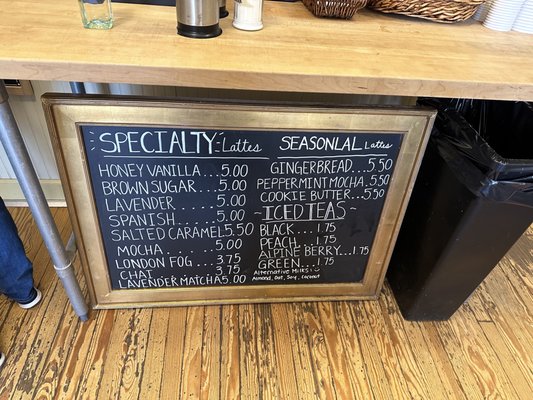 SPECIALTY Lattes
HONEY VANILLA...5.00
BROWN SUGAR...5.00
LAVENDER.....5.00
SPANISH.....5.00
SALTED CARAMEL5.50
MOCHA.....5.00
LONDON FOG...3.75
CHAI.....3.75
LAVENDER MATCHA5.00
SEASONLAL Lattes
GINGERBREAD...5.50
PEPPERMINT MOCHA.5.50
COOKIE BUTTER..5.50
~ICED TEAS~
BLACK....1.75
PEACH....1.75
ALPINE BERRY..1.75
GREEN...1.75
Alternative Milks:
Almond, Oat, Soy, Coconut